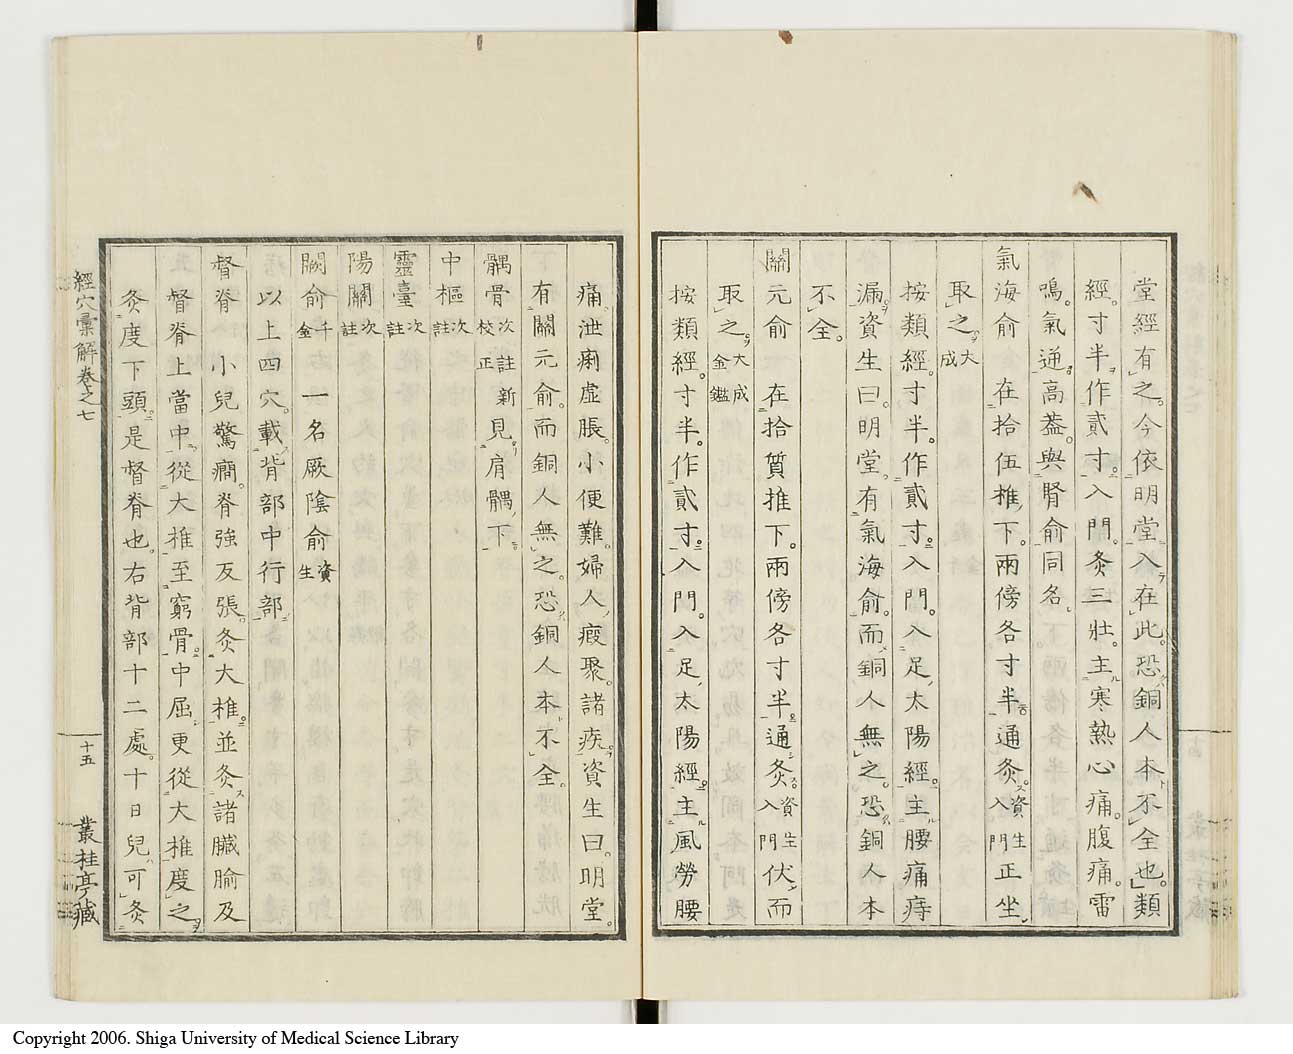 堂經有之。今依明堂入在此。恐銅人本不全也。類
經。寸半作貳寸。入門。灸三壯。主寒熱心痛。腹痛。雷
鳴。氣逆。高蓋。與腎俞同名。
氣海俞 在拾伍椎下。兩傍各寸半。通灸。資生入門正坐
取之。大成
按類經。寸半。作貳寸。入門。入足太陽經。主腰痛痔
漏。資生曰。明堂。有氣海俞。而銅人無之。恐銅人本
不全。
關元俞 在拾質推下。兩傍各寸半。通灸。資生入門伏而
取之。大成金鑑
按類經。寸半。作貳寸。入門。入足太陽經。主風勞腰
痛。泄痢。虛脹。小便難。婦人瘕聚。諸疾。資生曰。明堂。
有關元俞。而銅人無之。恐銅人本不全。
髃骨 次註新校正見肩髃下
中樞 次註
靈臺 次註
陽關 次註
闕俞 千金 一名厥陰俞 資生
以上四穴。載背部中行部
督脊 小兒驚癇。脊強反張。灸大椎。並灸諸臟腧及
督脊上當中。從大椎至窮骨。中屈。更從大椎度之
灸度下頭。是督脊也。右背部十二處。十日兒。可灸
經穴彙解卷之七
十五
叢桂亭藏
Copyright 2006. Shiga University of Medical Science Library